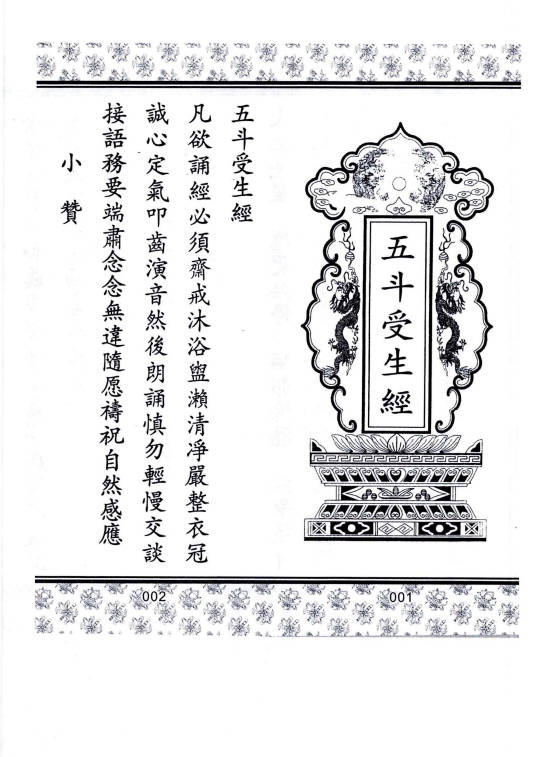 五斗受生經
001
五斗受生經
凡欲誦經必須齋戒沐浴盥瀨清凈嚴整衣冠
誠心定氣叩齒演音然後朗誦慎勿輕慢交談
接語務要端肅念念無違隨愿禱祝自然感應
小贊
002